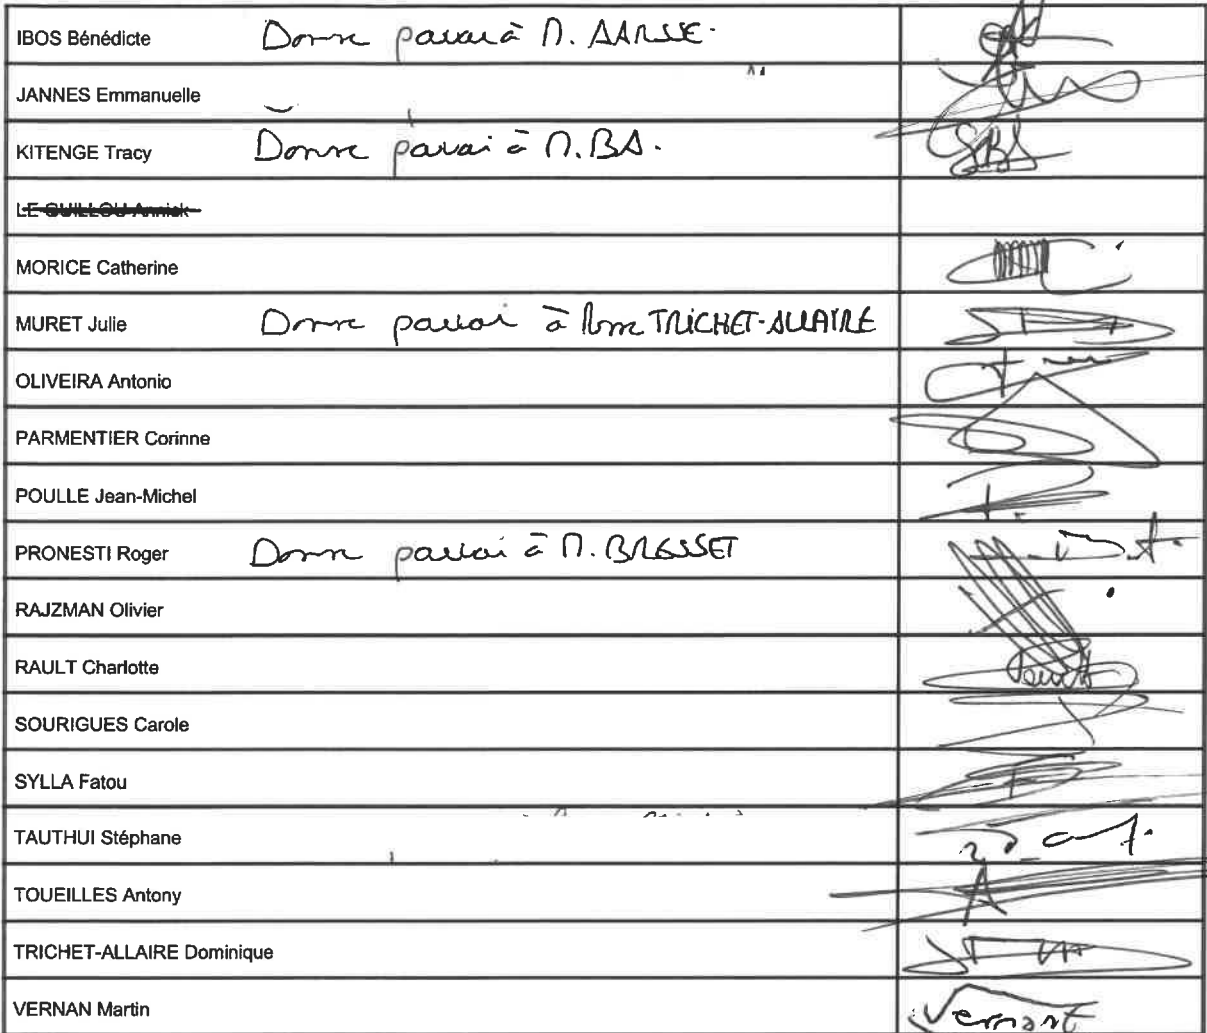 IBOS Bénédicte Donne pouvoir à M. AARSSE.
JANNES Emmanuelle
KITENGE Tracy Donne pouvoir à M. BA.
LE GUILLOU Annick
MORICE Catherine
MURET Julie Donne pouvoir à Mme TRICHET-ALLAIRE
OLIVEIRA Antonio
PARMENTIER Corinne
POULLE Jean-Michel
PRONESTI Roger Donne pouvoir à M. BRESSET
RAJZMAN Olivier
RAULT Charlotte
SOURIGUES Carole
SYLLA Fatou
TAUTHUI Stéphane
TOUEILLES Antony
TRICHET-ALLAIRE Dominique
VERNAN Martin Vernant